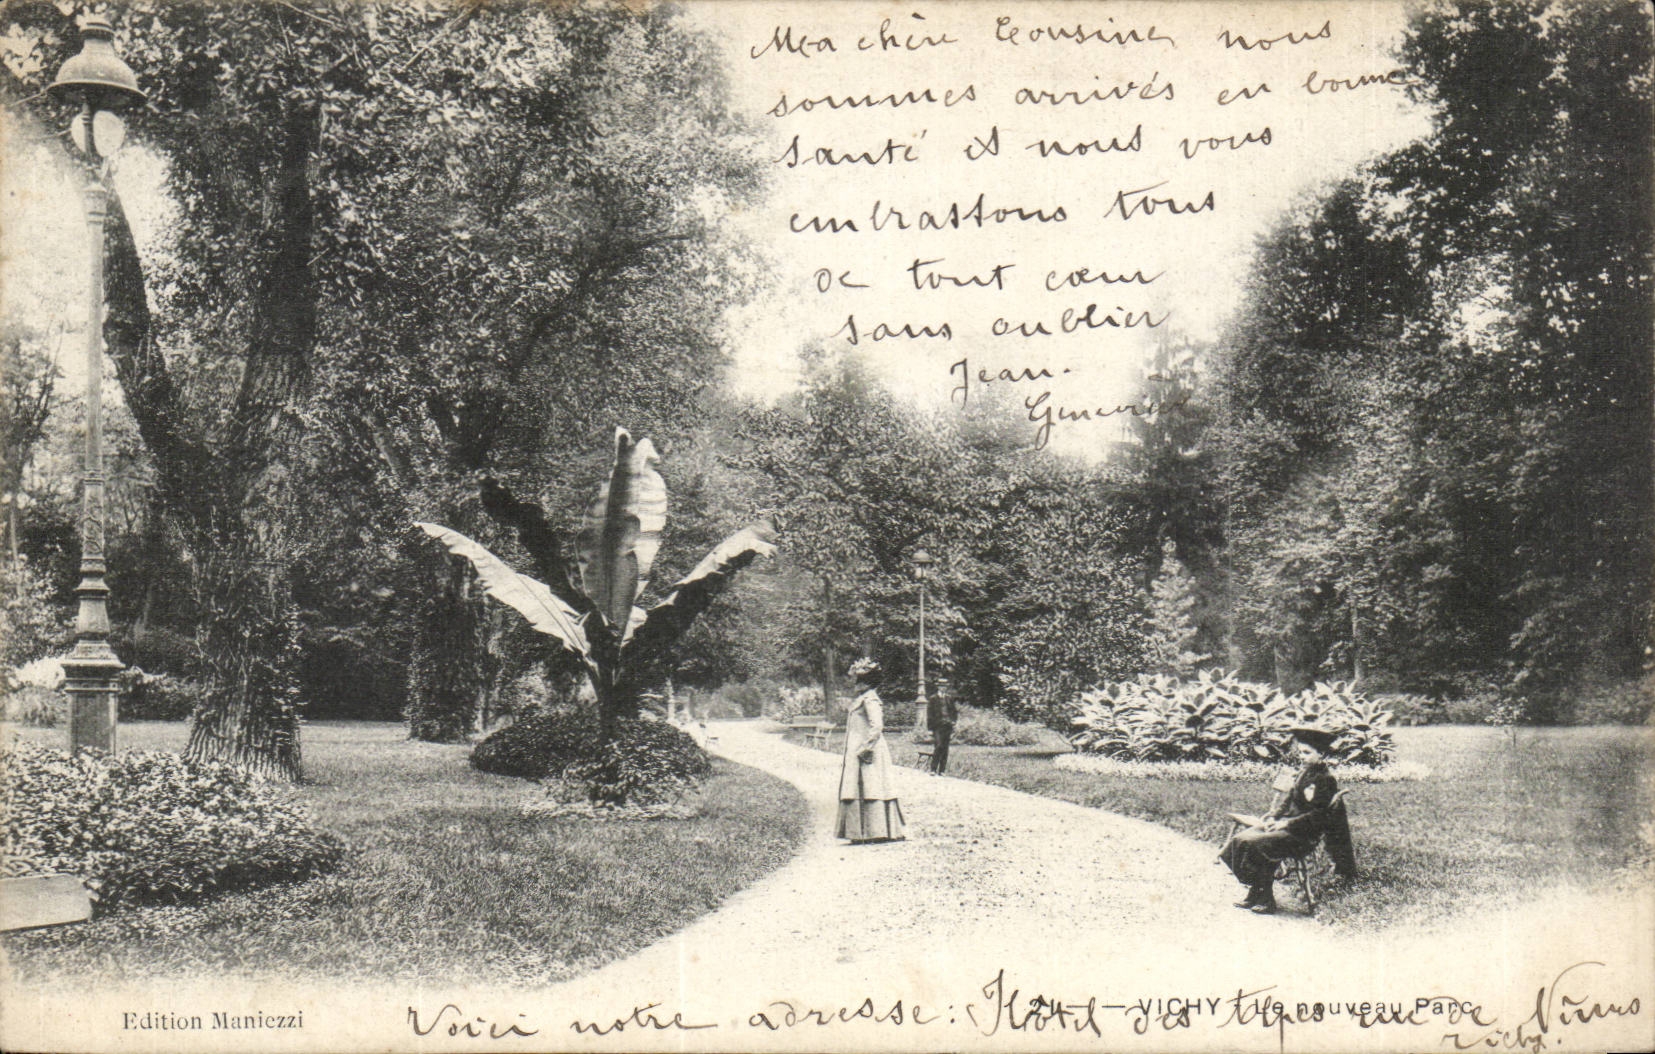 Ma chère Cousine, nous
sommes arrivés en bonne
santé et nous vous
embrassons tous
de tout cœur
sans oublier
Jean.
Geneviève
24 — VICHY - Le nouveau Parc
Edition Maniezzi
Voici notre adresse : Hôtel des Alpes rue de Nîmes
Vichy.